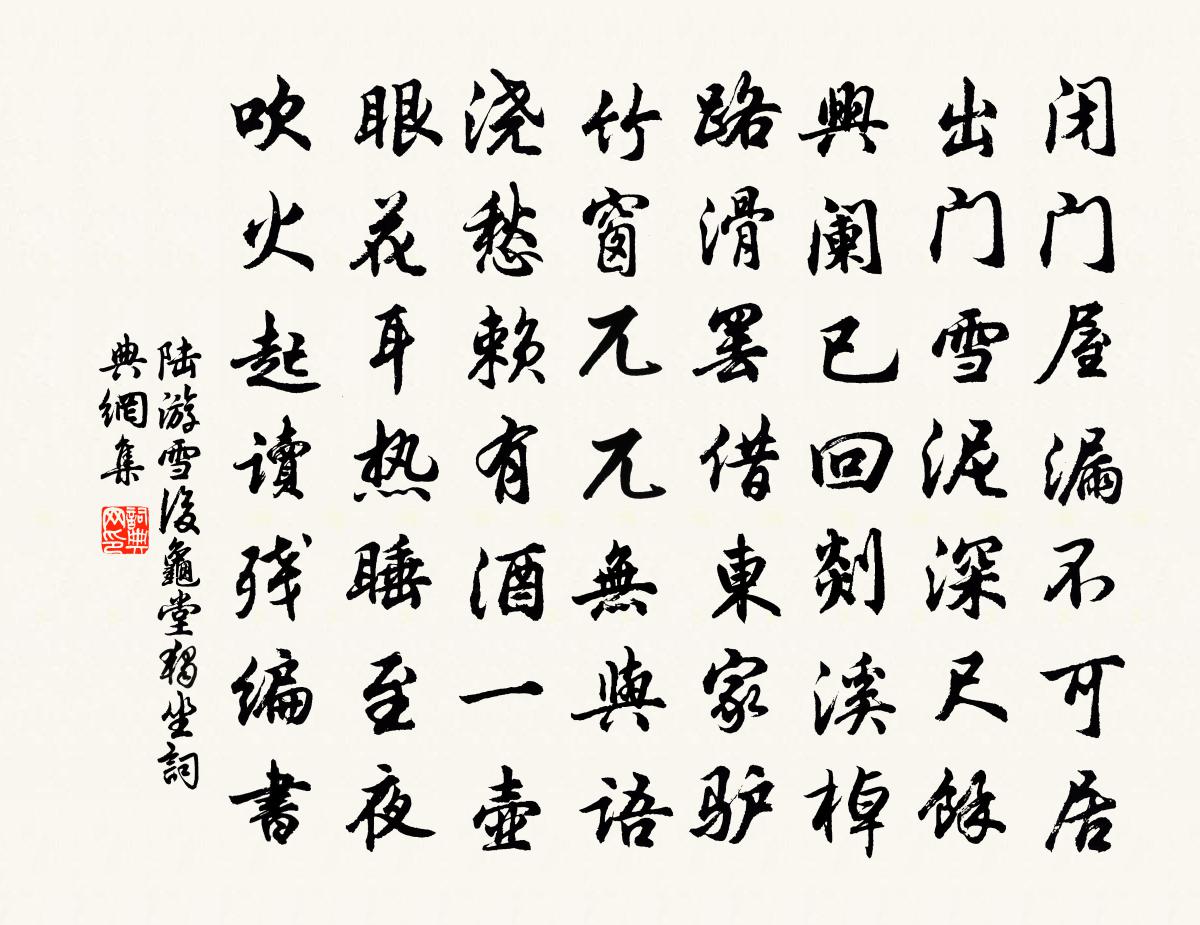 闭门屋漏不可居
出门雪泥深尺餘
興阑已回剡溪棹
路滑罢借東家驴
竹窗兀兀無與语
浇愁赖有酒一壶
眼花耳热睡至夜
吹火起讀残编書
陆游雪後龜堂獨坐詞
典網集
詞典
网印